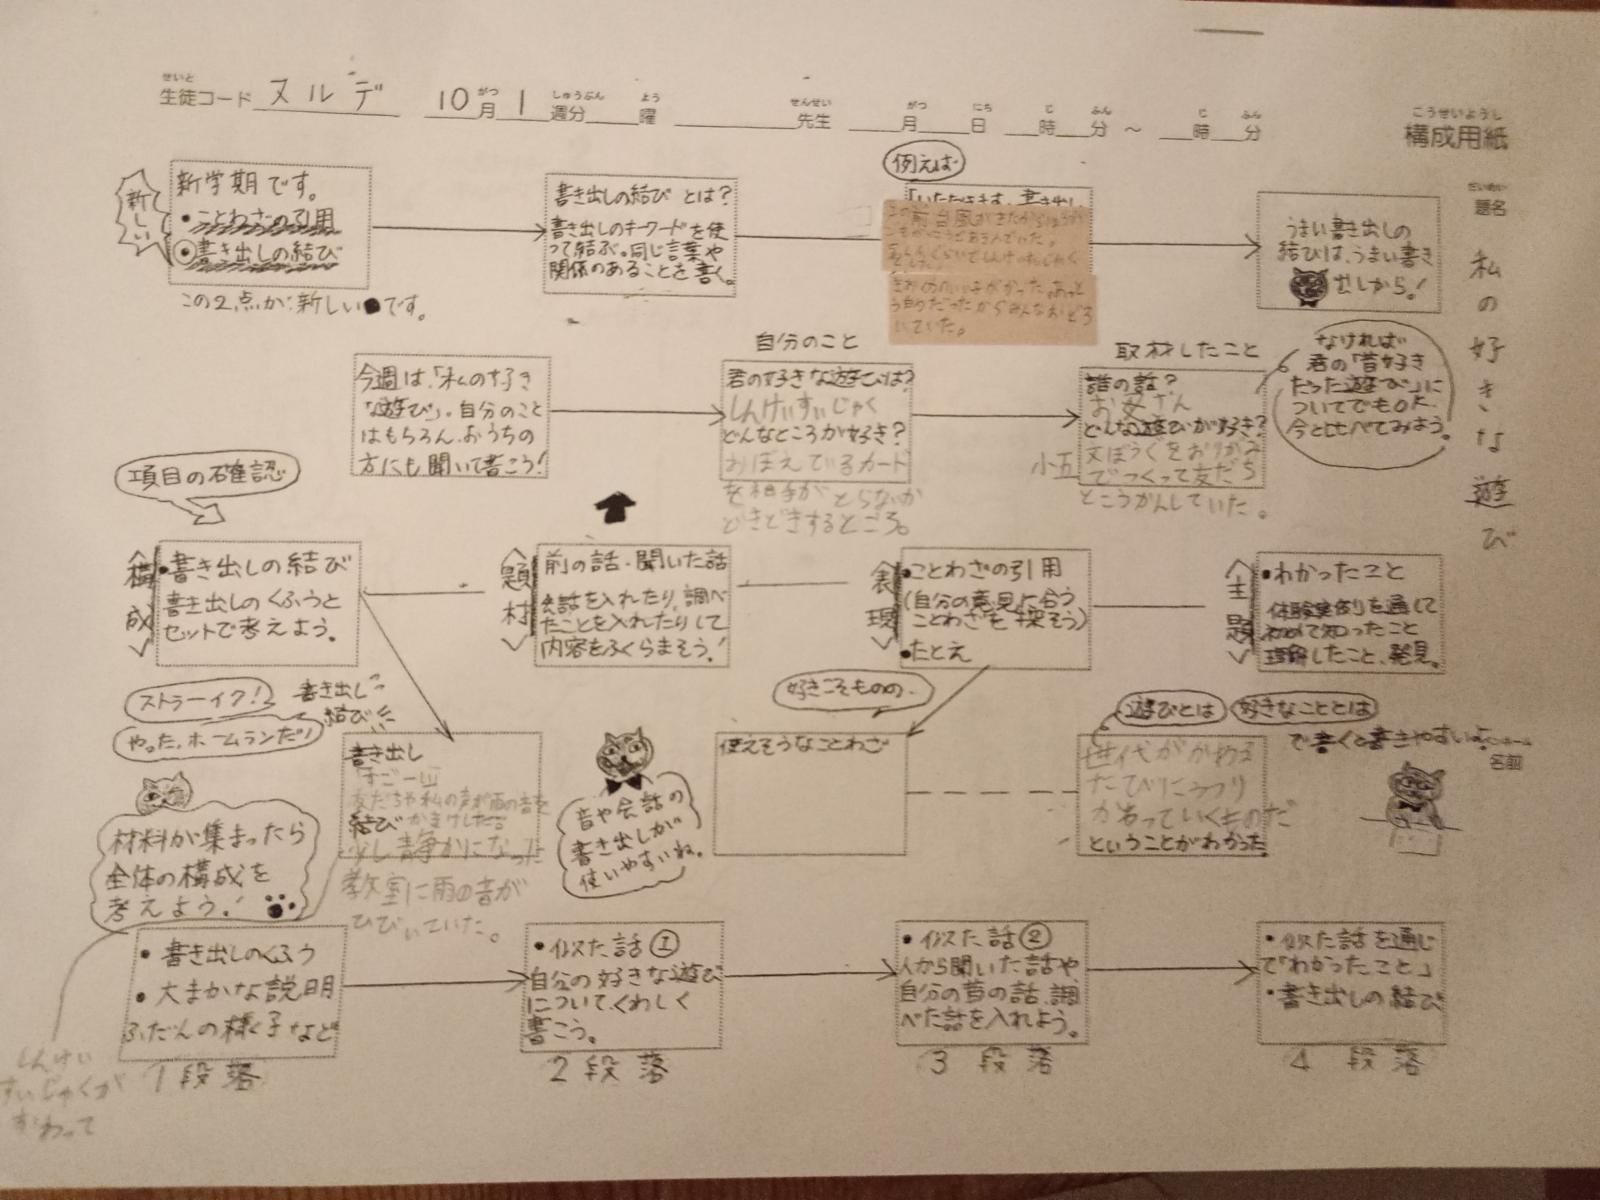 せいと がつ しゅうぶん よう せんせい がつ にち じ ふん じ ふん
生徒コード ヌルデ 10月1週分 曜 先生 月 日 時 分 ~ 時 分
こうせいようし
構成用紙
だいめい
題名
私の好きな遊び
新しい
新学期です。
・ことわざの引用
書き出しの結び
この2点が新しい●です。
書き出しの結び とは?
書き出しのキーワードを使
って結ぶ。同じ言葉や
関係のあることを書く。
例えば
「いただきます。書き出し
前台風がきたから
う自分だったからみんなおどろ
いていた。
うまい書き出しの
結びは、うまい書き
出しから!
今週は、「私の好き
な遊び」。自分のこと
はもちろん、おうちの
方にも聞いて書こう!
自分のこと
君の好きな遊びは?
しんけいすいじゃく
どんなところが好き?
おぼえているカード
を相手がとらないか
どきどきするところ。
取材したこと
誰の話?
お父さん
どんな遊びが好き?
小五
文ぼうぐをおりがみ
でつくって友だち
とこうかんしていた。
なければ
君の「昔好き
だった遊び」に
ついてでもOK.
今と比べてみよう。
項目の確認
〈構成〉
・書き出しの結び
書き出しのくふうと
セットで考えよう。
〈題材〉
前の話・聞いた話
会話を入れたり、調べ
たことを入れたりして
内容をふくらまそう!
表現
・ことわざの引用
(自分の意見に合う
ことわざを探そう)
・たとえ
〈主題〉
・わかったこと
体験(実例)を通して
初めて知ったこと
理解したこと、発見。
ストラーイク!
やった、ホームランだ!
書き出し
結び
書き出し
「すごーい」
友だちや私の声が雨の音を
結び かまけした。
少し静かになった
教室に雨の音が
ひびいていた。
音や会話の
書き出しが
使いやすいね。
好きこそものの…
使えそうなことわざ
遊びとは
好きなこととは
で書くと書きやすいよ。
名前
世代がかわる
たびにうつり
かわっていくものだ
ということがわかった。
材料が集まったら
全体の構成を
考えよう!
・書き出しのくふう
・大まかな説明
ふだんの様子など
1段落
しんけい
すいじゃくが
すわって
・似た話①
自分の好きな遊び
について、くわしく
書こう。
2段落
・似た話②
人から聞いた話や、
自分の昔の話、調
べた話を入れよう。
3段落
・似た話を通じ
て「わかったこと」
・書き出しの結び
4段落